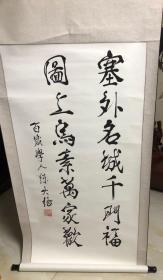 塞外名城千門福
圖上烏素萬家歡
百歲學人陳大